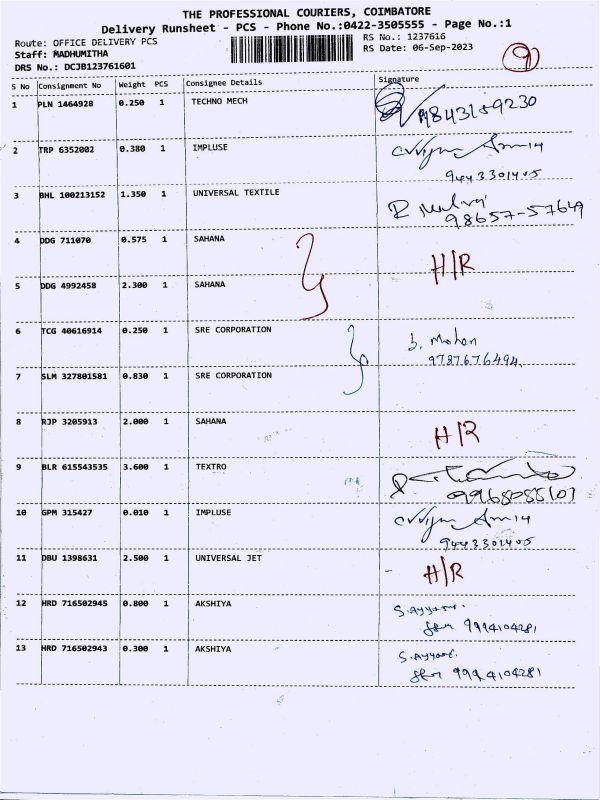 THE PROFESSIONAL COURIERS, COIMBATORE
Delivery Runsheet - PCS - Phone No.:0422-3505555 - Page No.:1
Route: OFFICE DELIVERY PCS
RS No.: 1237616
Staff: MADHUMITHA
RS Date: 06-Sep-2023
DRS No.: DCJB123761601
9
S No Consignment No Weight PCS Consignee Details Signature
1 PLN 1464928 0.250 1 TECHNO MECH 9843159230
2 TRP 6352002 0.380 1 IMPLUSE
9443301405
3 BHL 100213152 1.350 1 UNIVERSAL TEXTILE R
98657-57649
4 DDG 711070 0.575 1 SAHANA
H/R
5 DDG 4992458 2.300 1 SAHANA
6 TCG 40616914 0.250 1 SRE CORPORATION b. Mohan
9787676494
7 SLM 327801581 0.830 1 SRE CORPORATION
8 RJP 3205913 2.000 1 SAHANA H/R
9 BLR 615543535 3.600 1 TEXTRO
9968085107
10 GPM 315427 0.010 1 IMPLUSE
9443301405
11 DBU 1398631 2.500 1 UNIVERSAL JET H/R
12 HRD 716502945 0.800 1 AKSHIYA
9994104281
13 HRD 716502943 0.300 1 AKSHIYA
9994104281